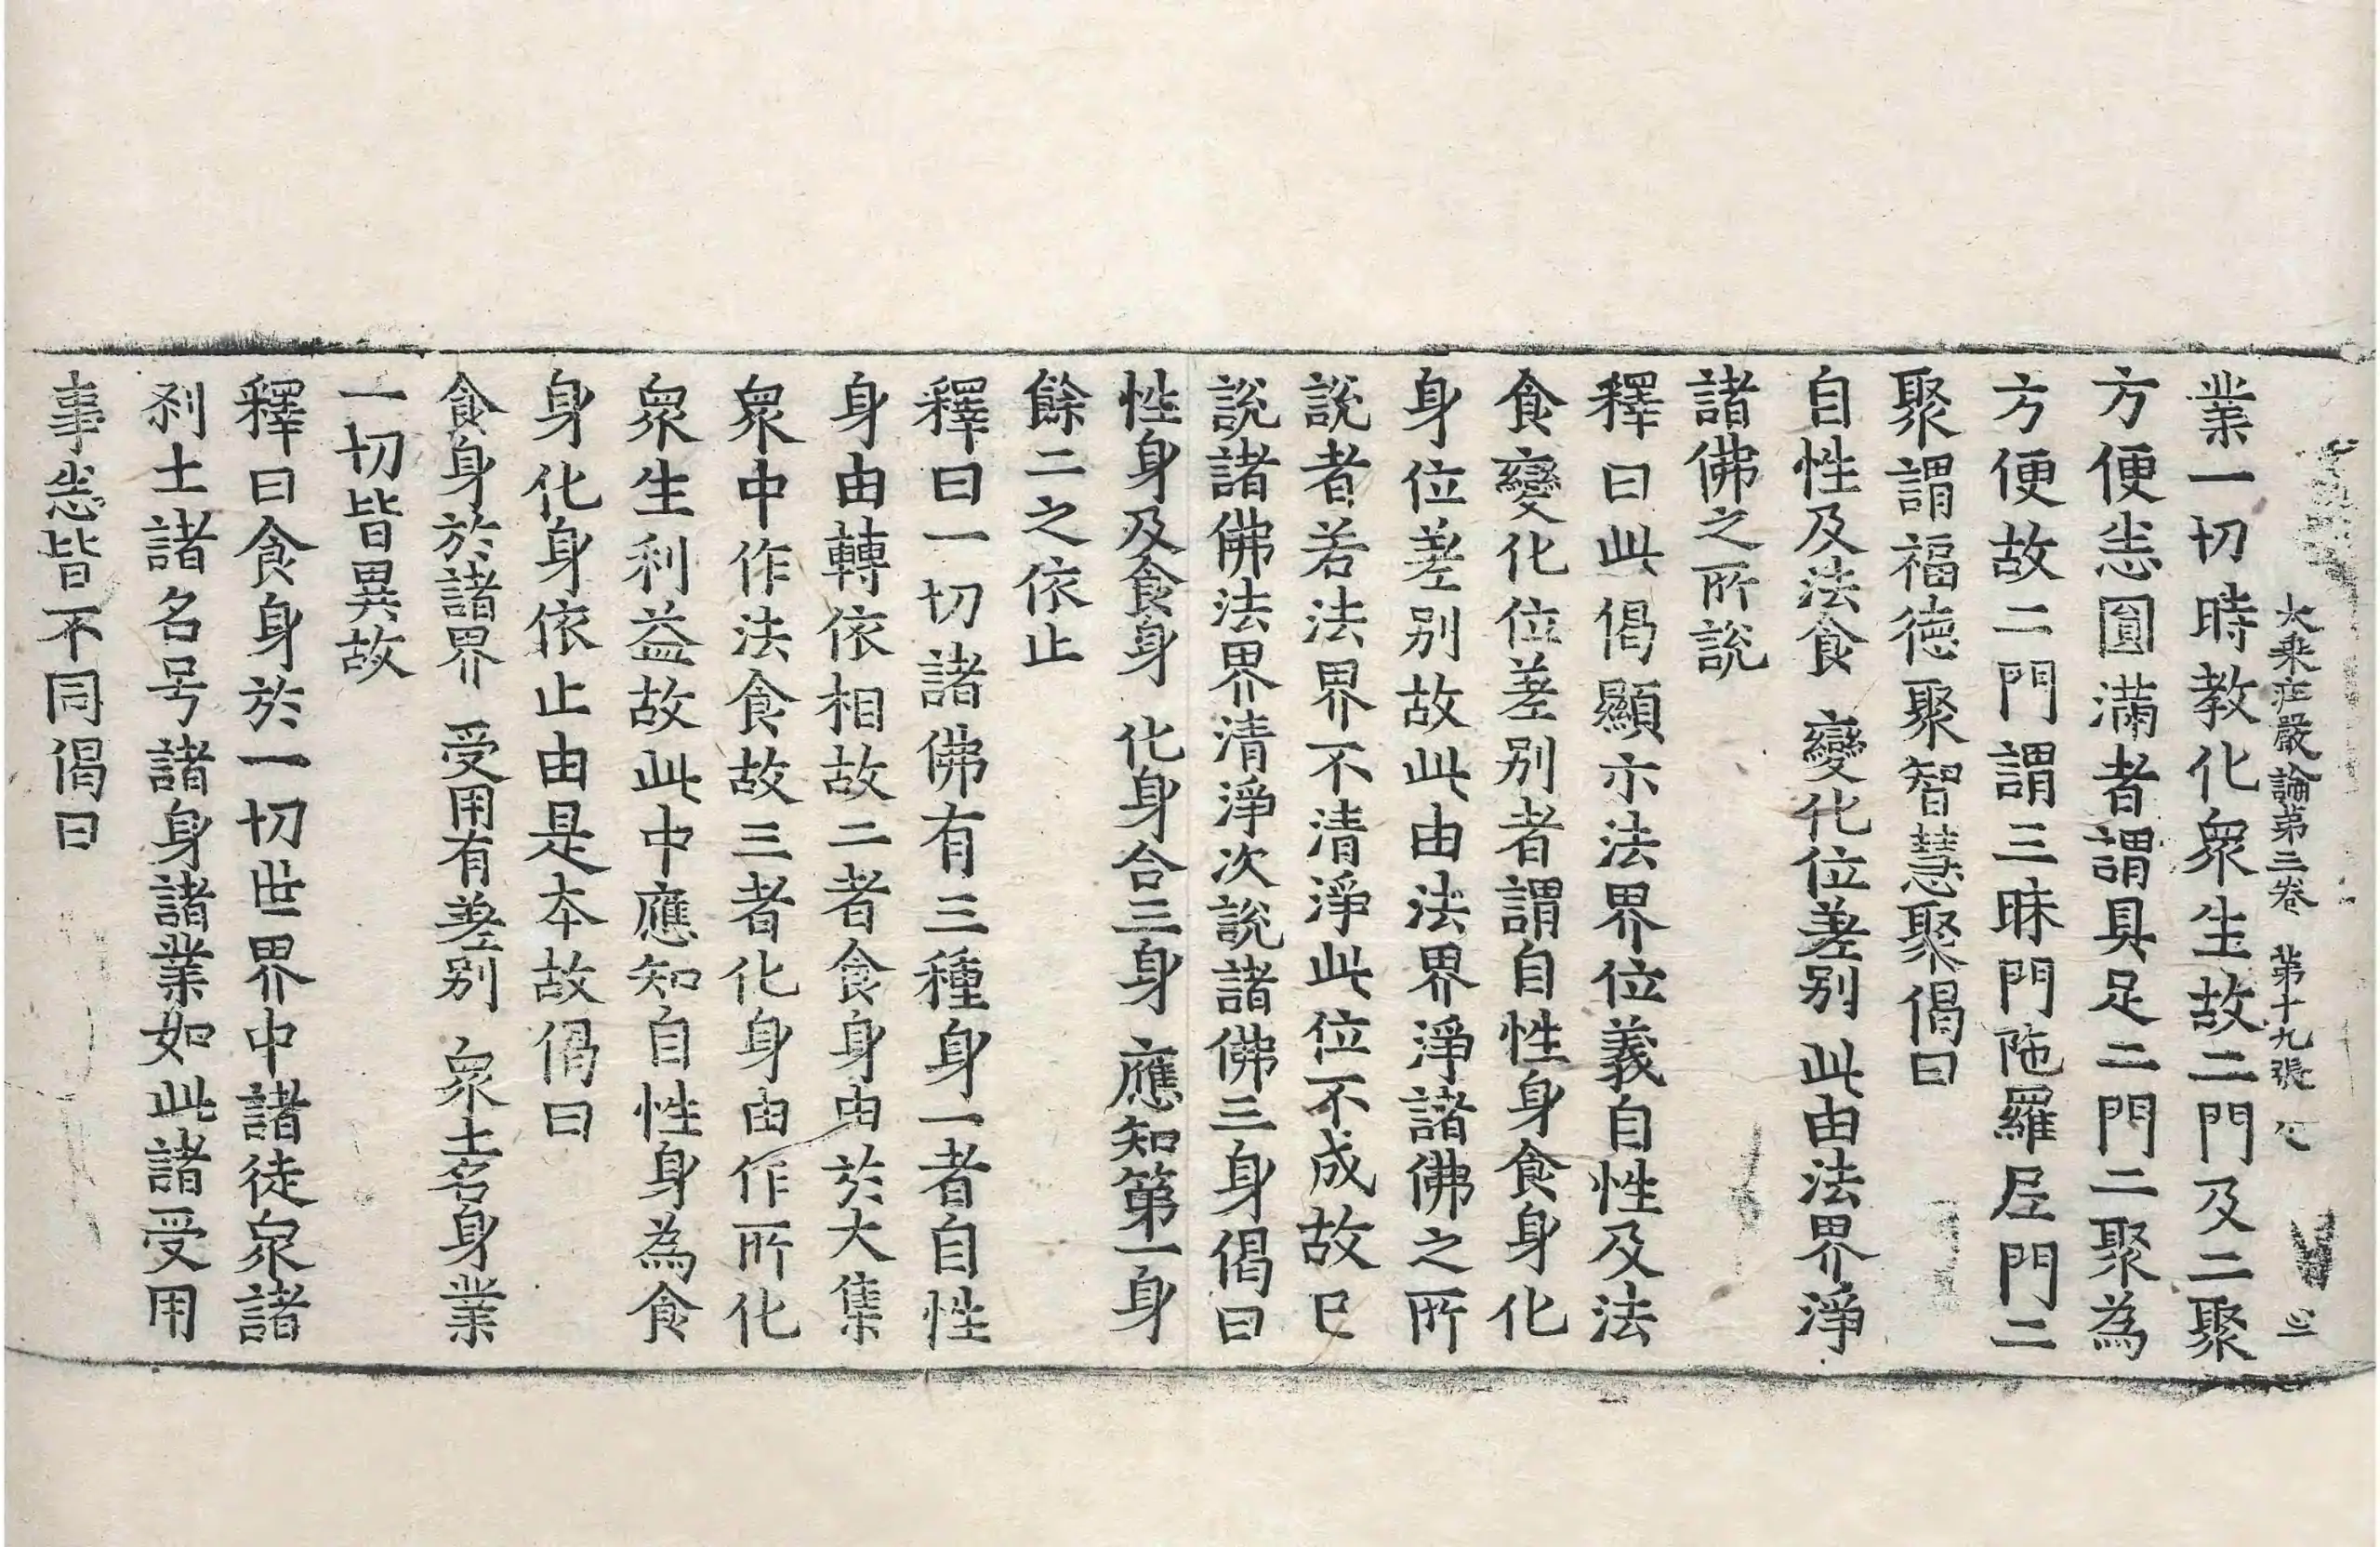 大乘庄嚴論第三卷 第十九張
業一切時教化衆生故二門及二聚
方便恙圓滿者謂具足二門二聚為
方便故二門謂三昧門陁羅尼門二
聚謂福徳聚智慧聚偈曰
自性及法食 變化位差别 此由法界淨
諸佛之所說
釋曰此偈顯示法界位義自性及法
食變化位差别者謂自性身食身化
身位差别故此由法界淨諸佛之所
說者若法界不清淨此位不成故已
說諸佛法界清淨次說諸佛三身偈曰
性身及食身 化身合三身 應知第一身
餘二之依止
釋曰一切諸佛有三種身一者自性
身由轉依相故二者食身由於大集
衆中作法食故三者化身由作所化
衆生利益故此中應知自性身為食
身化身依止由是夲故偈曰
食身於諸界 受用有差别 衆土名身業
一切皆異故
釋曰食身於一切世界中諸徒衆諸
刹土諸名号諸身諸業如此諸受用
事恙皆不同偈曰